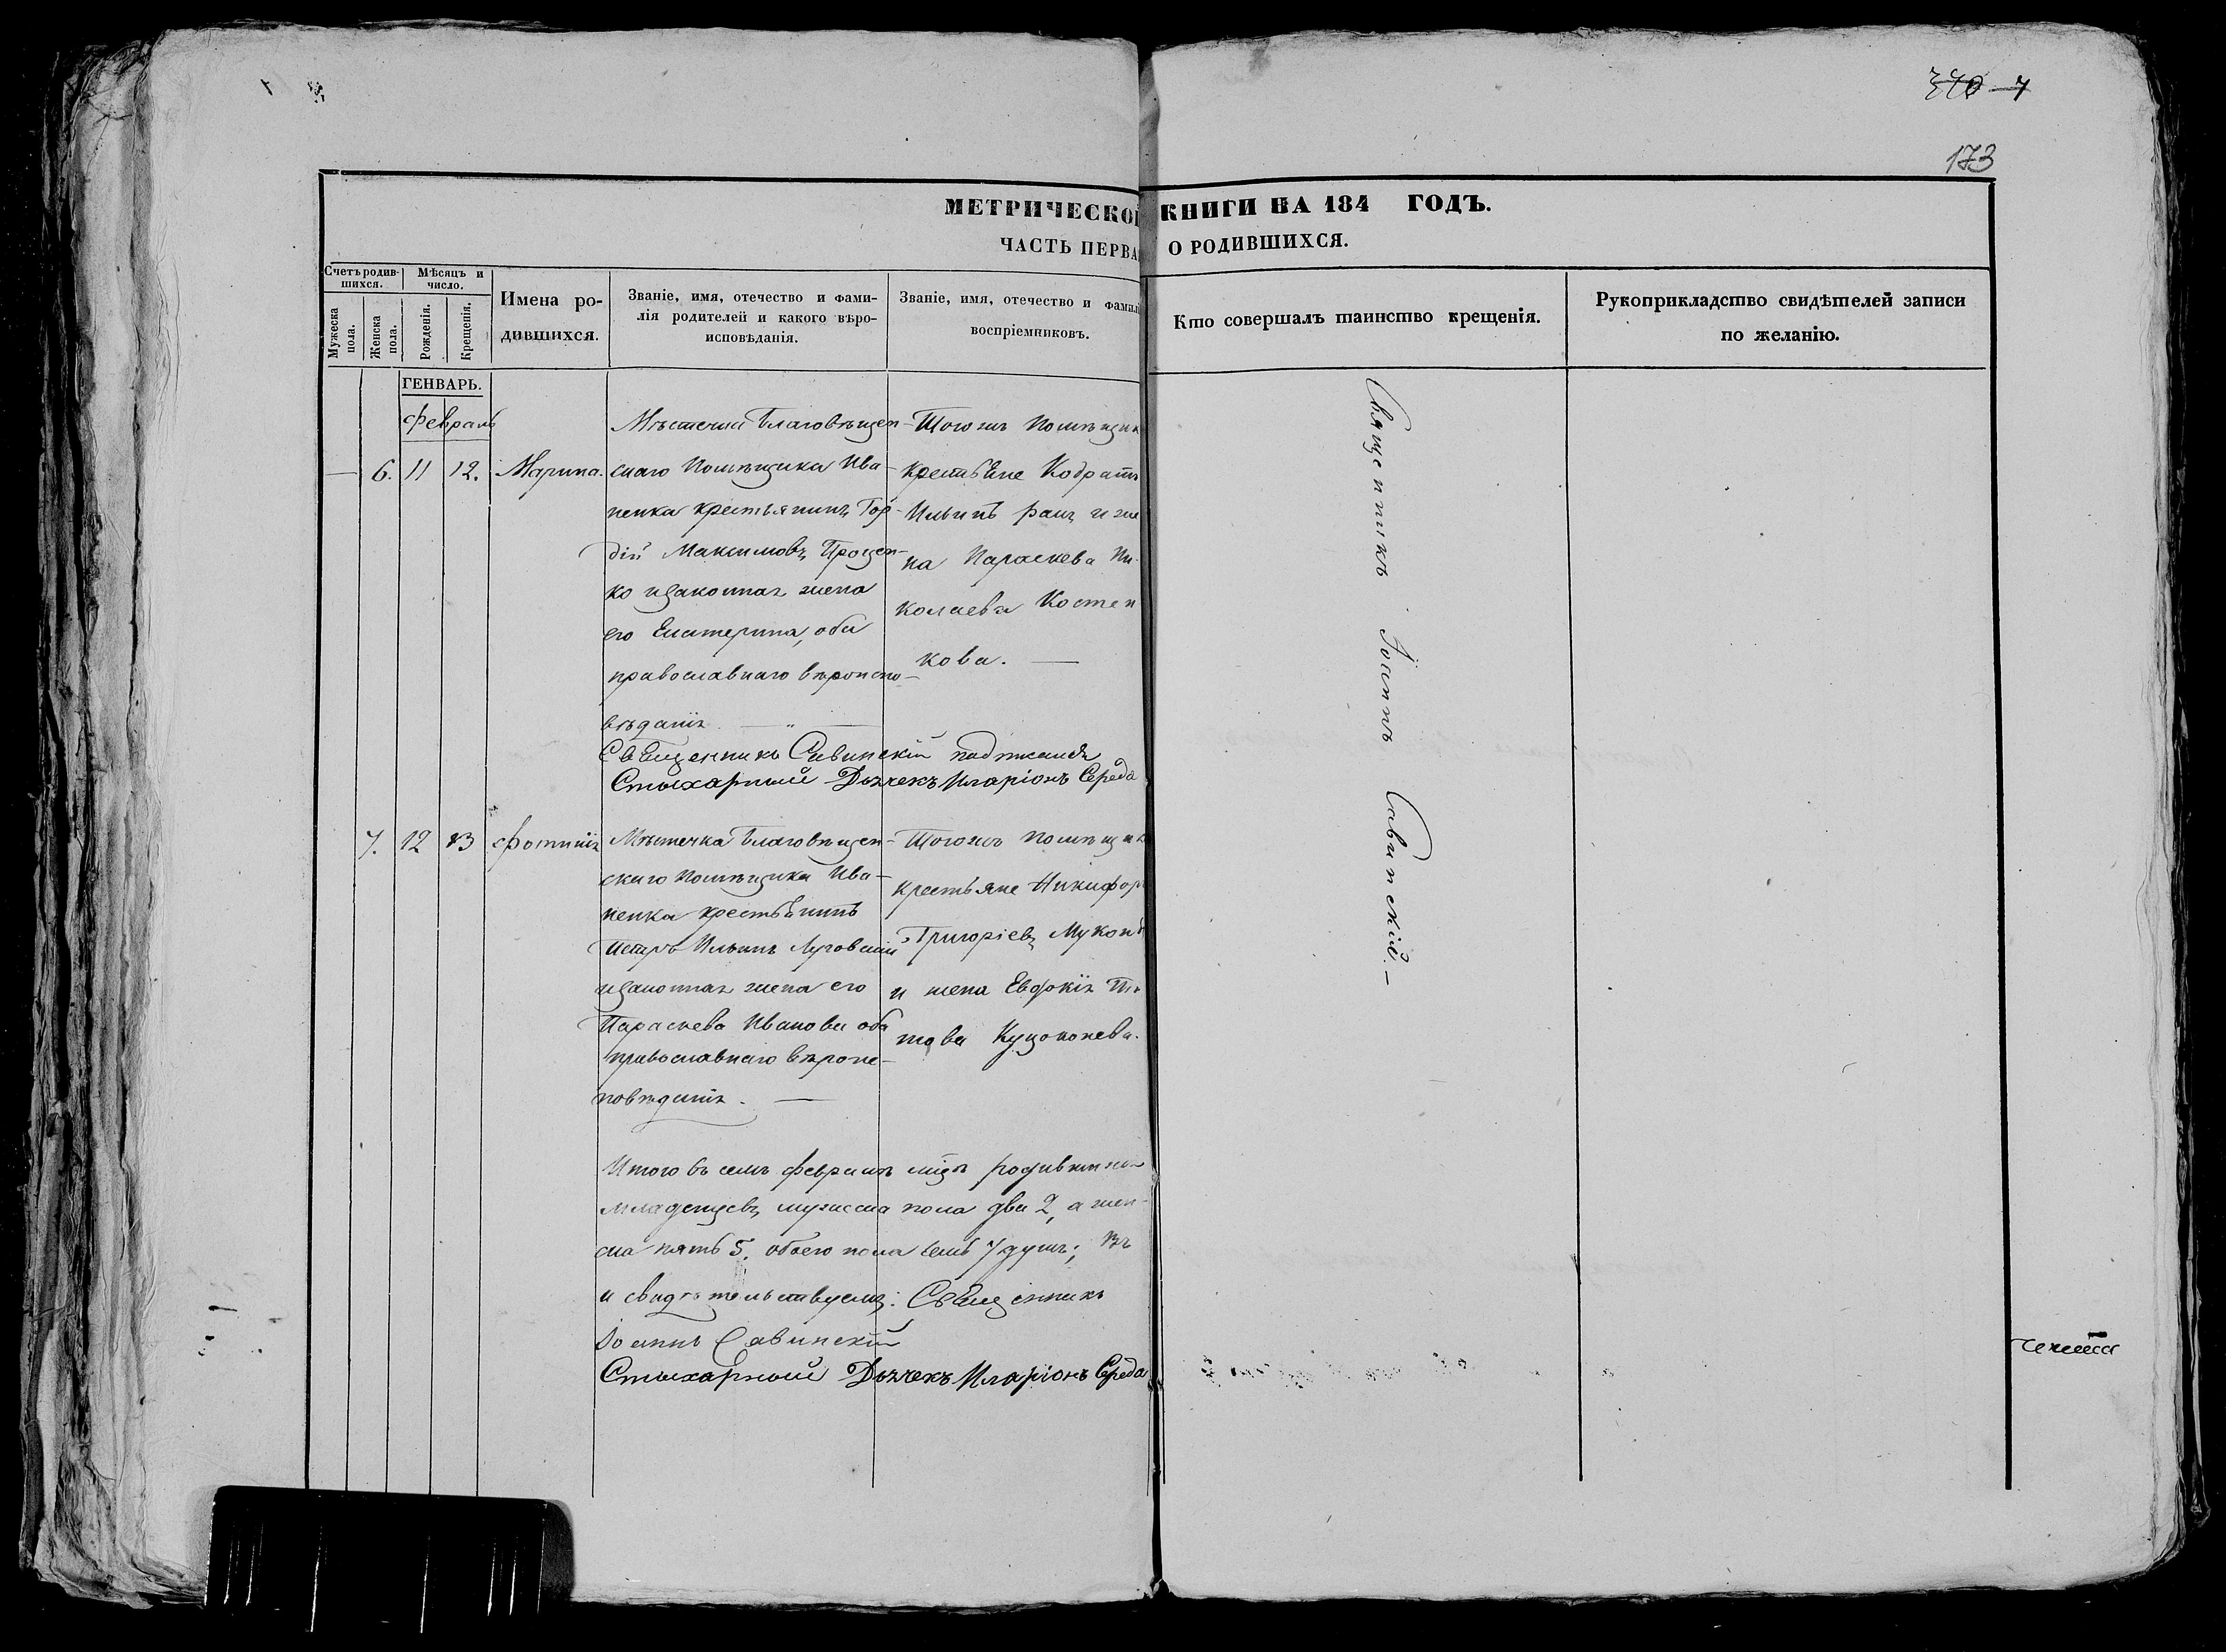 370 7
173
МЕТРИЧЕСКОЙ КНИГИ НА 184 ГОДЪ.
ЧАСТЬ ПЕРВА О РОДИВШИХСЯ.
Счетъ родив-
шихся.
Мужеска
пола.
Женска
пола.
Мѣсяцъ и
число.
Рожденія.
Крещенія.
Имена ро-
дившихся.
Званіе, имя, отечество и фами-
лія родителей и какого вѣро-
исповѣданія.
Званіе, имя, отечество и фамилі
воспріемниковъ.
Кто совершалъ таинство крещенія.
Рукоприкладство свидѣтелей записи
по желанію.
ГЕНВАРЬ.
Февраль
— 6. 11 12. Марина.
Мѣстечка Благовѣщен-
скаго Помѣщика Ива-
ненка крестьянинъ Гор-
дій Максимовъ Процен-
ко изаконная жена
его Екатерина, оба
православнаго вѣроиспо-
вѣданія. — „ —
Тогожъ Помѣщик
крестьяне Кодратъ
Ильинъ и же
на Параскева Ни-
колаева Костен
кова. —
Священникъ Савинскій подписался
Стыхарный Дьячекъ Иларіонъ Середа
7. 12 13 Фотинія
Мѣстечка Благовѣщен-
скаго Помѣщика Ива-
ненка крестьянинъ
Петръ Ильинъ Луговскій
изаконная жена его
Параскева Иванова оба
православнаго вѣроис-
повѣданія. —
Тогожъ помѣщик
крестьяне Никифоръ
Григоріевъ Мукон
и жена Евдокія Ти
това Куцоконева.
Священникъ Іоаннъ Савинскій. —
Итого въ семъ февралѣ мцѣ родившихся
младенцевъ мужеска пола два 2, а жен-
ска пять 5. обоего пола семь 7 душъ; въ
и свидѣтельствуемъ: Священникъ
Іоаннъ Савинскій
Стыхарный Дьячекъ Иларіонъ Середа